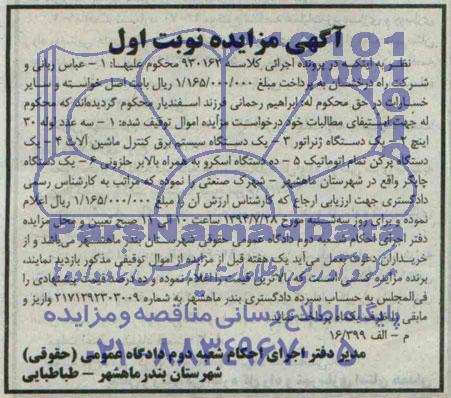 آگهی مزایده نوبت اول
نظر به اینکه در پرونده اجرائی کلاسه ۹۳۰۱۶۲ محکوم علیها: ۱ – عباس ربانی و
شرکت راه درخشان به پرداخت مبلغ ۱/۱۶۵/۰۰۰/۰۰۰ ریال بابت اصل خواسته و سایر
خسارات در حق محکوم له: ابراهیم رحمانی فرزند اسفندیار محکوم گردیده‌اند که محکوم
له جهت استیفای مطالبات خود درخواست مزایده اموال توقیف شده: ۱ – سه عدد لوله ۳۰
اینچ ۲ – یک دستگاه ژنراتور ۳ – یک دستگاه سیستم برق کنترل ماشین آلات ۴ – یک
دستگاه پرکن تمام اتوماتیک ۵ – ده دستگاه اسکرو به همراه بالابر حلزونی ۶ – یک دستگاه
چاپگر واقع در شهرستان ماهشهر – شهرک صنعتی را نموده که مراتب به کارشناس رسمی
دادگستری جهت ارزیابی ارجاع که کارشناس ارزش آن را مبلغ ۱/۱۶۵/۰۰۰/۰۰۰ ریال اعلام
نموده و برای روز سه‌شنبه مورخ ۱۳۹۴/۷/۲۸ ساعت ۱۰ الی ۱۱ صبح تعیین و محل مزایده
دفتر اجرای احکام شعبه دوم دادگاه عمومی حقوقی شهرستان بندر ماهشهر می‌باشد و از
خریداران دعوت بعمل می‌آید یک هفته قبل از مزایده از اموال توقیفی مذکور بازدید نمایند،
برنده مزایده کسی است که بالاترین قیمت را اعلام نموده و ده درصد قیمت پیشنهادی را
فی‌المجلس به حساب سپرده دادگستری بندر ماهشهر به شماره ۲۱۷۱۲۹۲۳۰۳۰۰۹ واریز و
مابقی را ظرف یک ماه پرداخت نماید.
م – الف ۱۶/۳۹۹
مدیر دفتر اجرای احکام شعبه دوم دادگاه عمومی (حقوقی)
شهرستان بندرماهشهر – طباطبایی
ParsNamadData
پایگاه اطلاع رسانی مناقصه و مزایده
۰۲۱-۸۸۳۴۹۶۷۰-۵